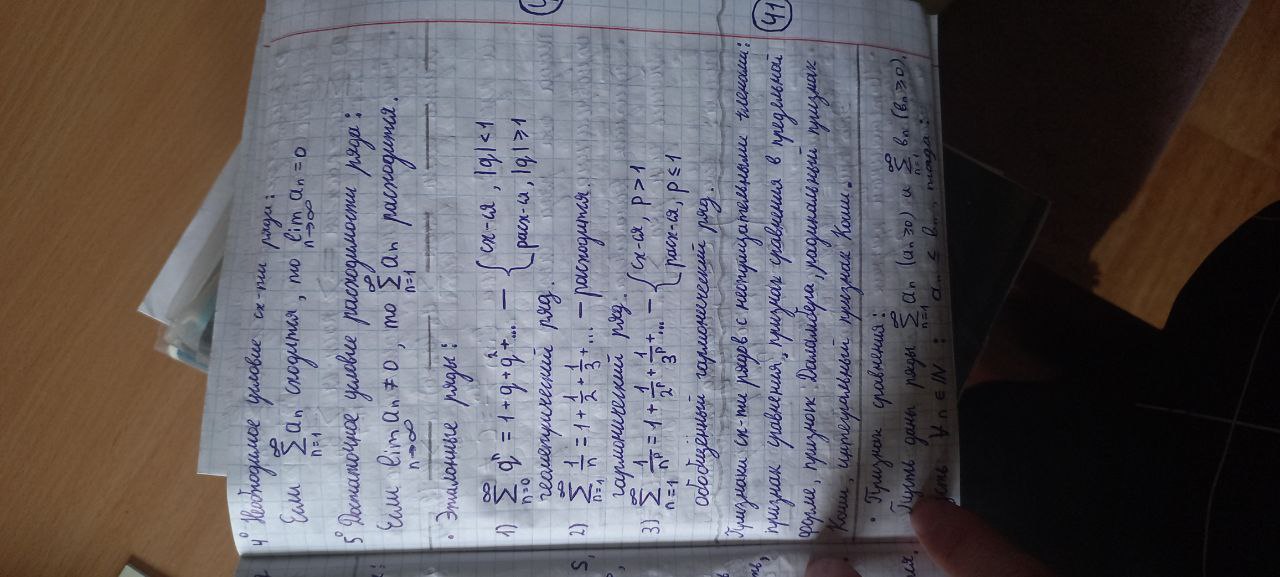 4° Необходимое условие сх-ти ряда:
Если ∑_{n=1}^{∞} aₙ сходится, то lim_{n→∞} aₙ = 0
5° Достаточное условие расходимости ряда:
Если lim_{n→∞} aₙ ≠ 0, то ∑_{n=1}^{∞} aₙ расходится.
• Эталонные ряды:
1) ∑_{n=0}^{∞} qⁿ = 1 + q + q² + ... — { сх-ся, |q| < 1
расх-ся, |q| ≥ 1
геометрический ряд.
2) ∑_{n=1}^{∞} 1/n = 1 + 1/2 + 1/3 + ... — расходится.
гармонический ряд.
3) ∑_{n=1}^{∞} 1/nᵖ = 1 + 1/2ᵖ + 1/3ᵖ + ... — { сх-ся, p > 1
расх-ся, p ≤ 1
обобщённый гармонический ряд.
41
Признаки сх-ти рядов с неотрицательными членами:
признак сравнения, признак сравнения в предельной
форме, признак Даламбера, радикальный признак
Коши, интегральный признак Коши.
• Признак сравнения:
Пусть даны ряды ∑_{n=1}^{∞} aₙ (aₙ ≥ 0) и ∑_{n=1}^{∞} bₙ (bₙ ≥ 0).
∀ n ∈ ℕ : aₙ ≤ bₙ, тогда: